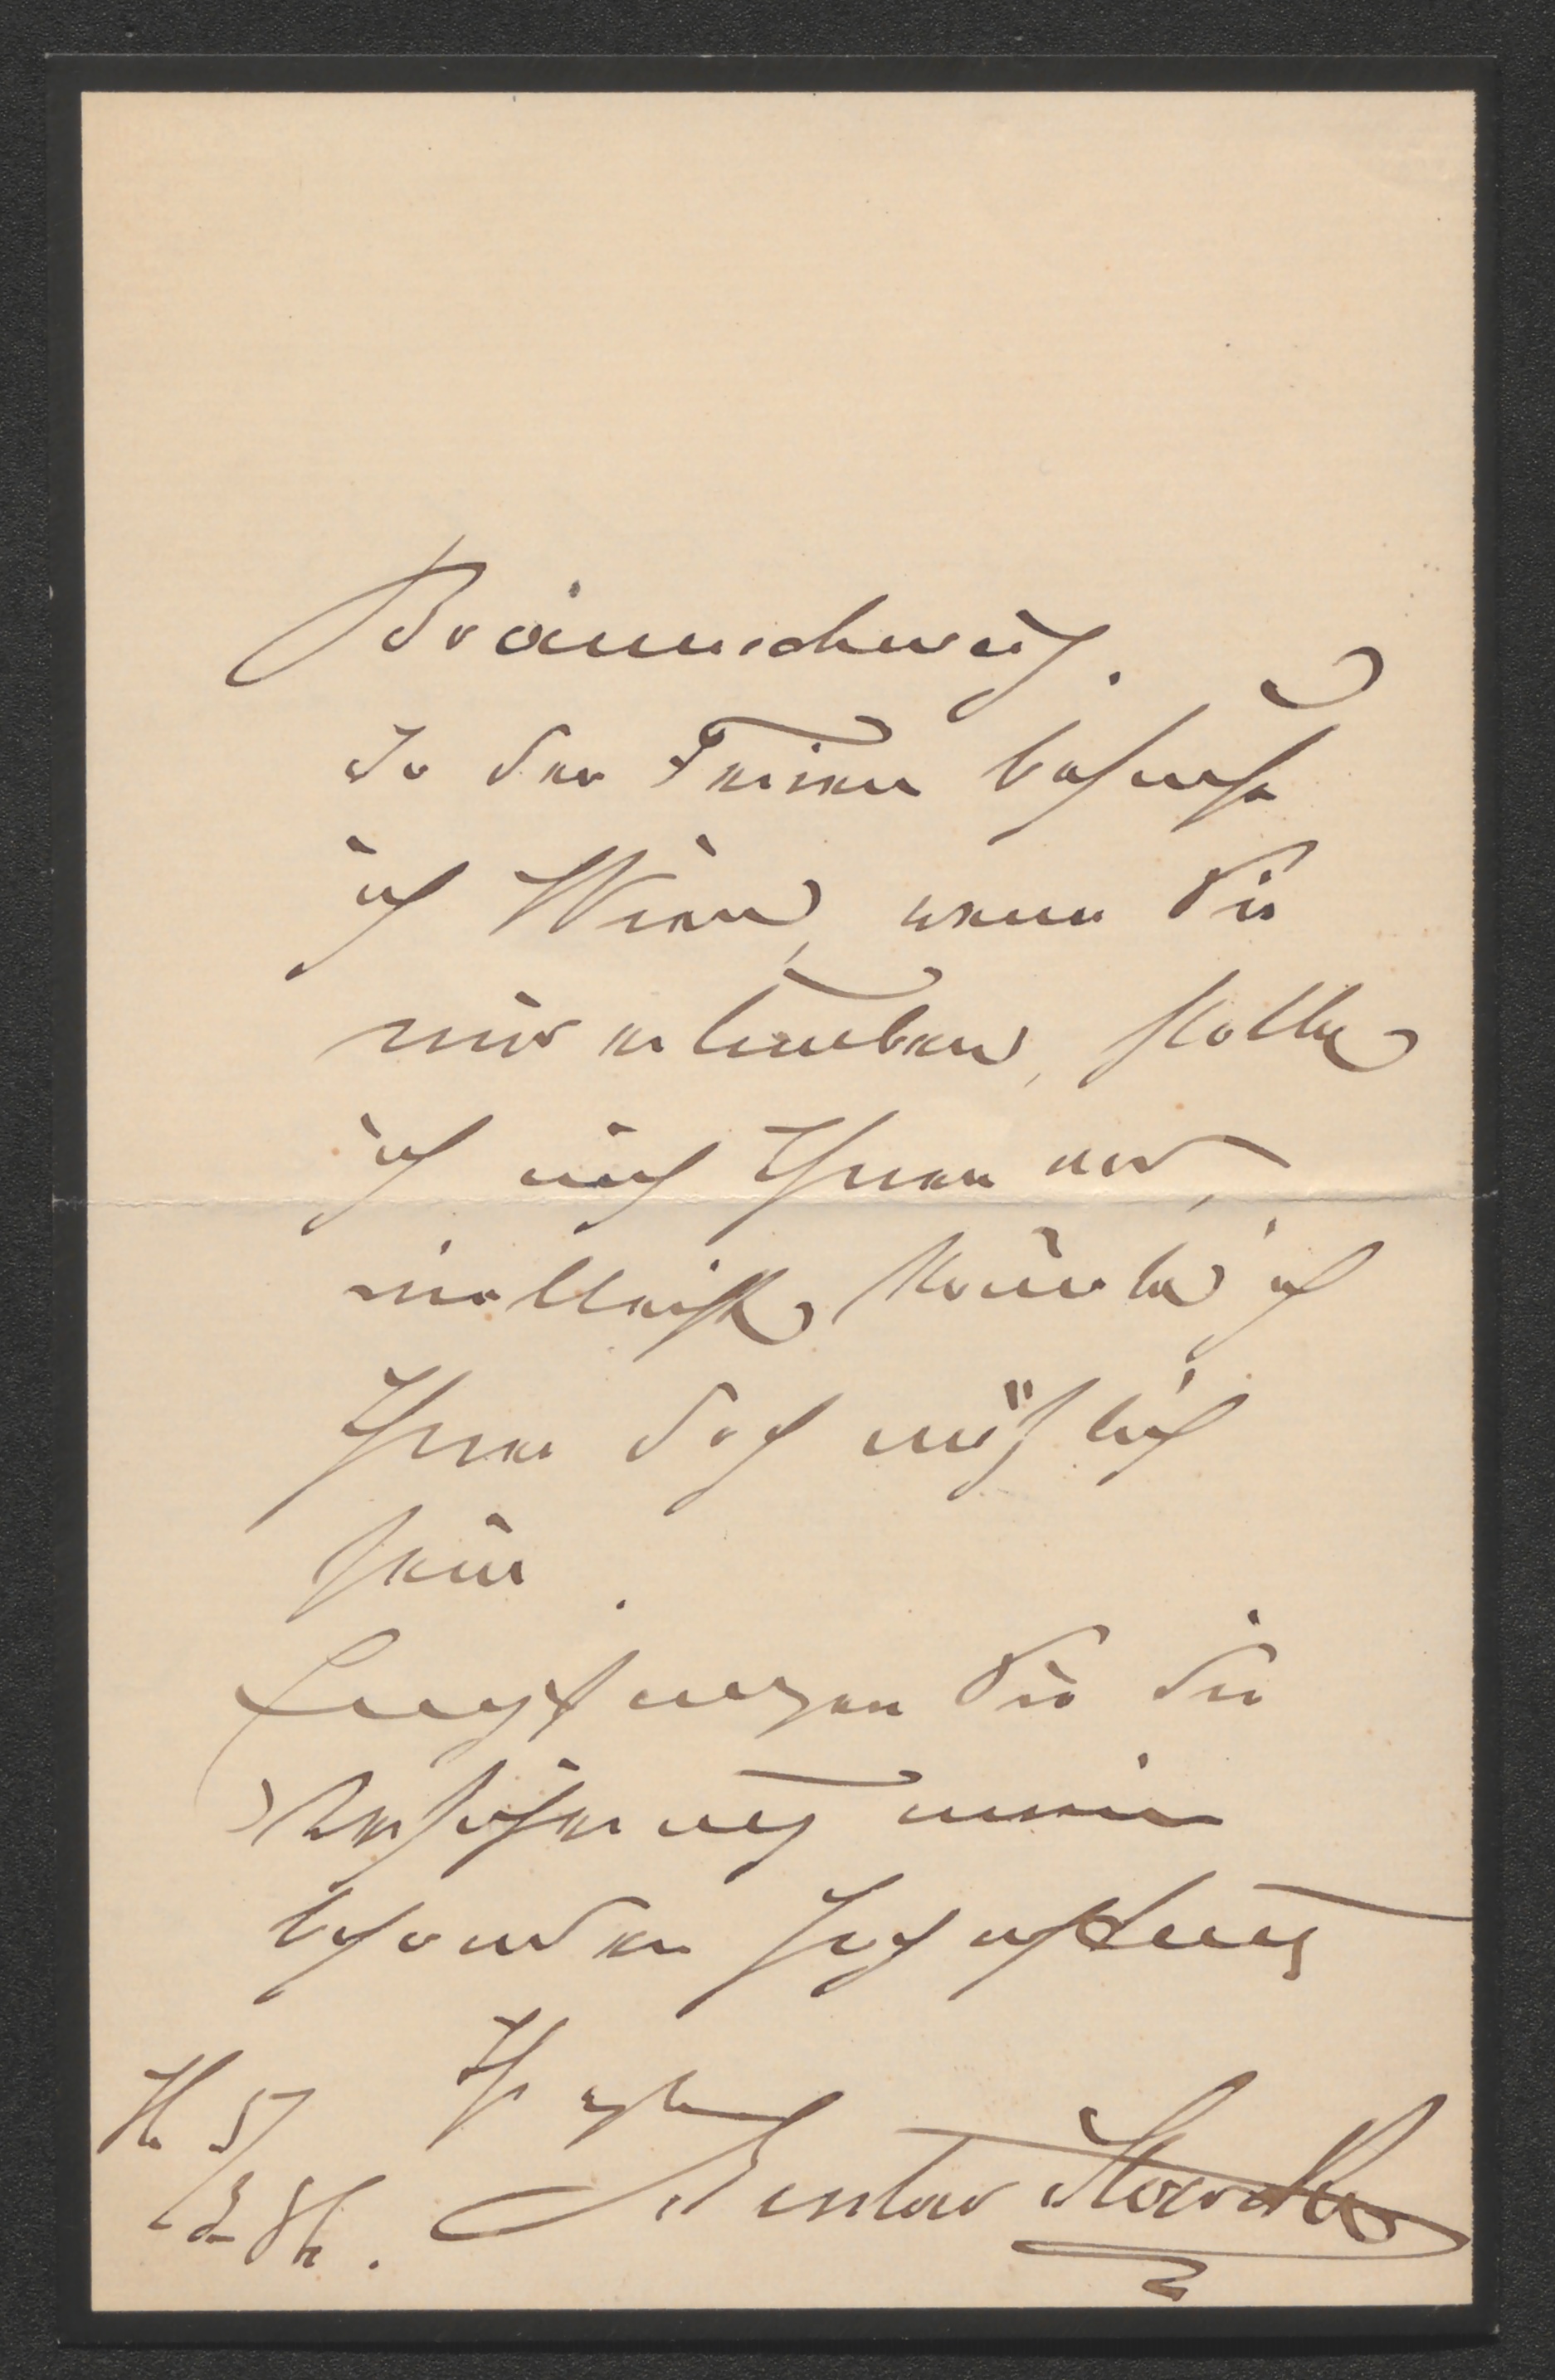 Braunschweig.
In den Ferien besuche
ich Wien, wenn Sie
mir erlauben, stelle
ich mich Ihnen vor,
vielleicht könnte ich
Ihnen doch nützlich
sein.
Empfangen Sie die
Versicherung meiner
besonderen Hochachtung
Ihr
H. 5/
3 86. Gustav